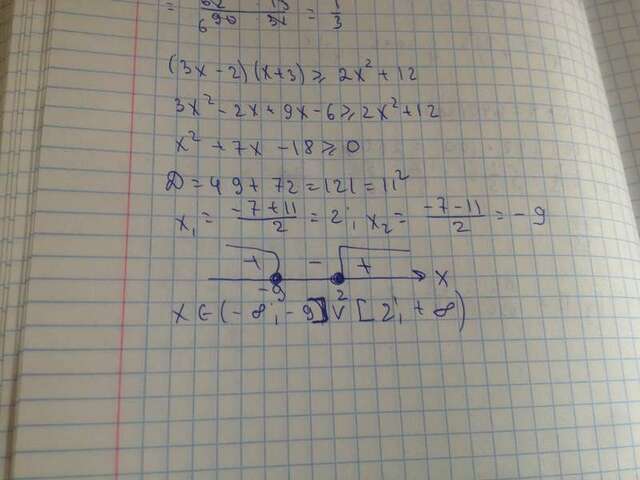 = 13 / 6 90 = 1/3
(3x-2)(x+3) ≥ 2x²+12
3x²-2x+9x-6 ≥ 2x²+12
x²+7x-18 ≥ 0
D = 49+72 = 121 = 11²
x₁ = (-7+11)/2 = 2; x₂ = (-7-11)/2 = -9
+ - + x
-9 2
x ∈ (-∞; -9] ∪ [2; +∞)